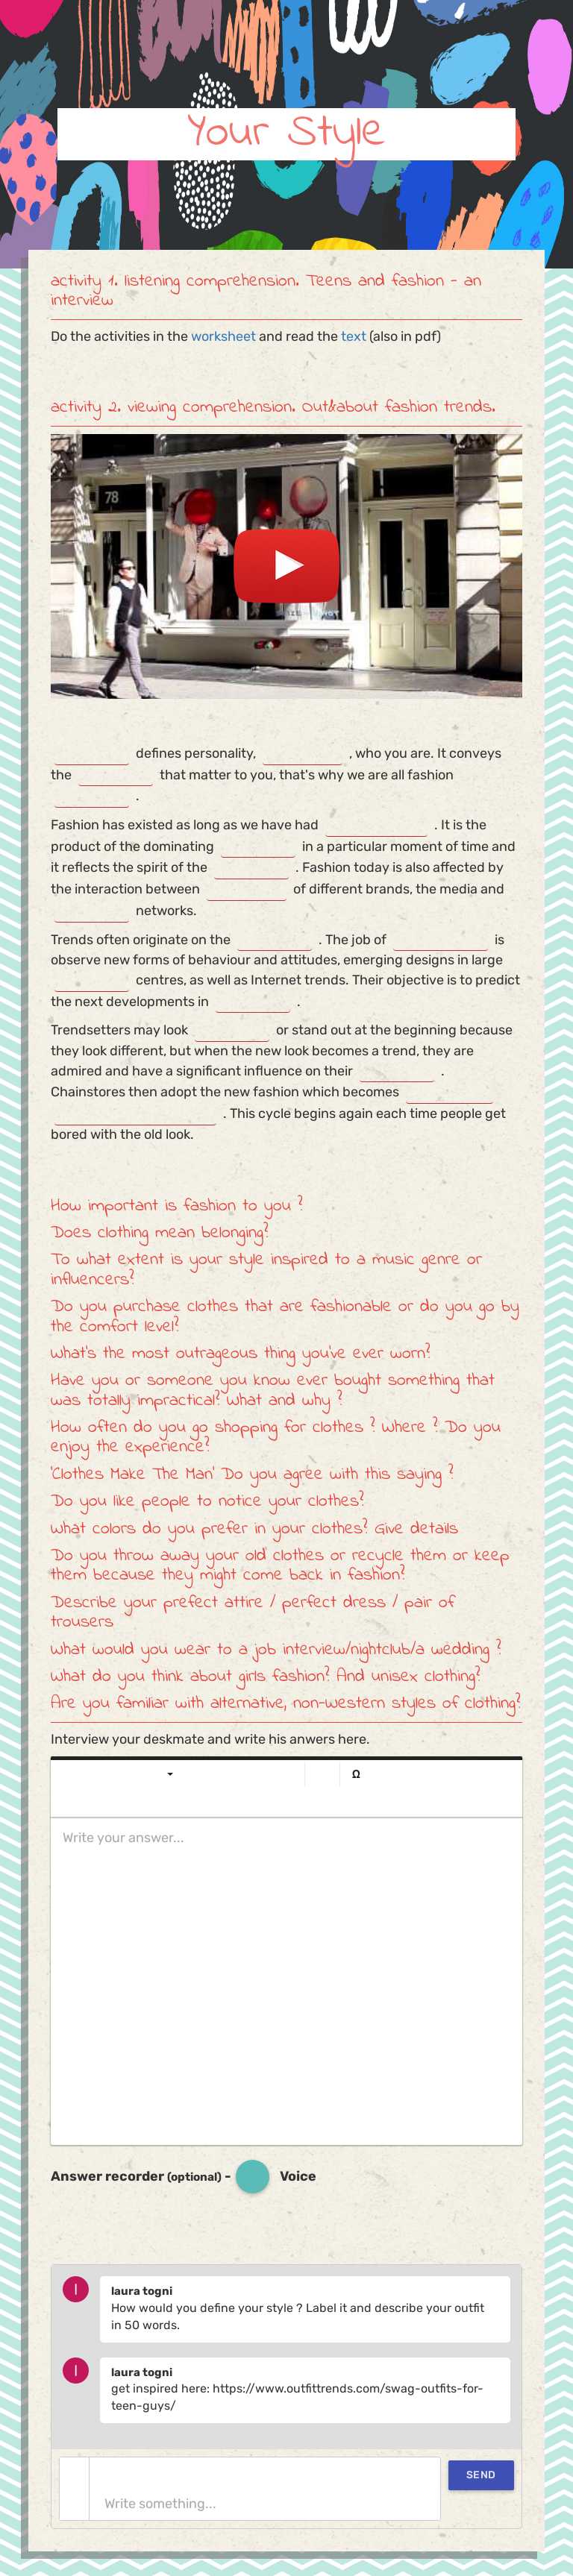 Your Style
activity 1. listening comprehension. Teens and fashion - an
interview
Do the activities in the worksheet and read the text (also in pdf)
activity 2. viewing comprehension. Out&about fashion trends.
78
defines personality, , who you are. It conveys
the that matter to you, that's why we are all fashion
.
Fashion has existed as long as we have had . It is the
product of the dominating in a particular moment of time and
it reflects the spirit of the . Fashion today is also affected by
the interaction between of different brands, the media and
networks.
Trends often originate on the . The job of is
observe new forms of behaviour and attitudes, emerging designs in large
centres, as well as Internet trends. Their objective is to predict
the next developments in .
Trendsetters may look or stand out at the beginning because
they look different, but when the new look becomes a trend, they are
admired and have a significant influence on their .
Chainstores then adopt the new fashion which becomes
. This cycle begins again each time people get
bored with the old look.
How important is fashion to you ?
Does clothing mean belonging?
To what extent is your style inspired to a music genre or
influencers?
Do you purchase clothes that are fashionable or do you go by
the comfort level?
What's the most outrageous thing you've ever worn?
Have you or someone you know ever bought something that
was totally impractical? What and why ?
How often do you go shopping for clothes ? Where ? Do you
enjoy the experience?
'Clothes Make The Man' Do you agree with this saying ?
Do you like people to notice your clothes?
What colors do you prefer in your clothes? Give details
Do you throw away your old clothes or recycle them or keep
them because they might come back in fashion?
Describe your prefect attire / perfect dress / pair of
trousers
What would you wear to a job interview/nightclub/a wedding ?
What do you think about girls fashion? And unisex clothing?
Are you familiar with alternative, non-Western styles of clothing?
Interview your deskmate and write his anwers here.
Ω
Write your answer...
Answer recorder (optional) - Voice
l
laura togni
How would you define your style ? Label it and describe your outfit
in 50 words.
l
laura togni
get inspired here: https://www.outfittrends.com/swag-outfits-for-
teen-guys/
SEND
Write something...